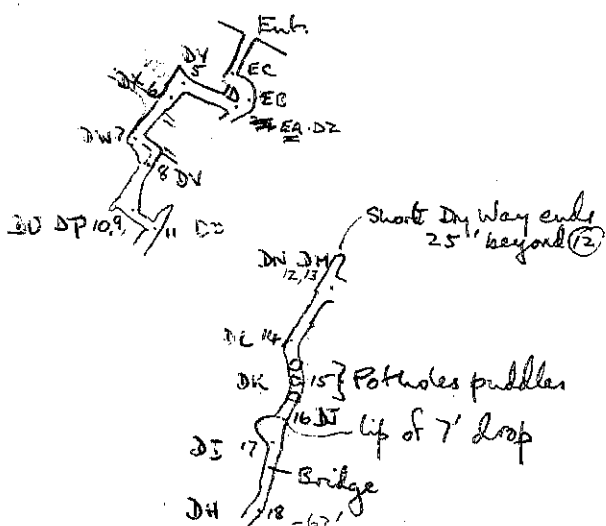 Ent.
EC
DY
5
EB
EA. DZ
6
DW 7
8 DV
DU DP 10,9,
11
Short Dry Way ends
25' beyond (12)
DN, DM
12, 13
DL 14
DK 15} Potholes puddles
16 DJ
lip of 7' drop
DI 17
Bridge
DH 18